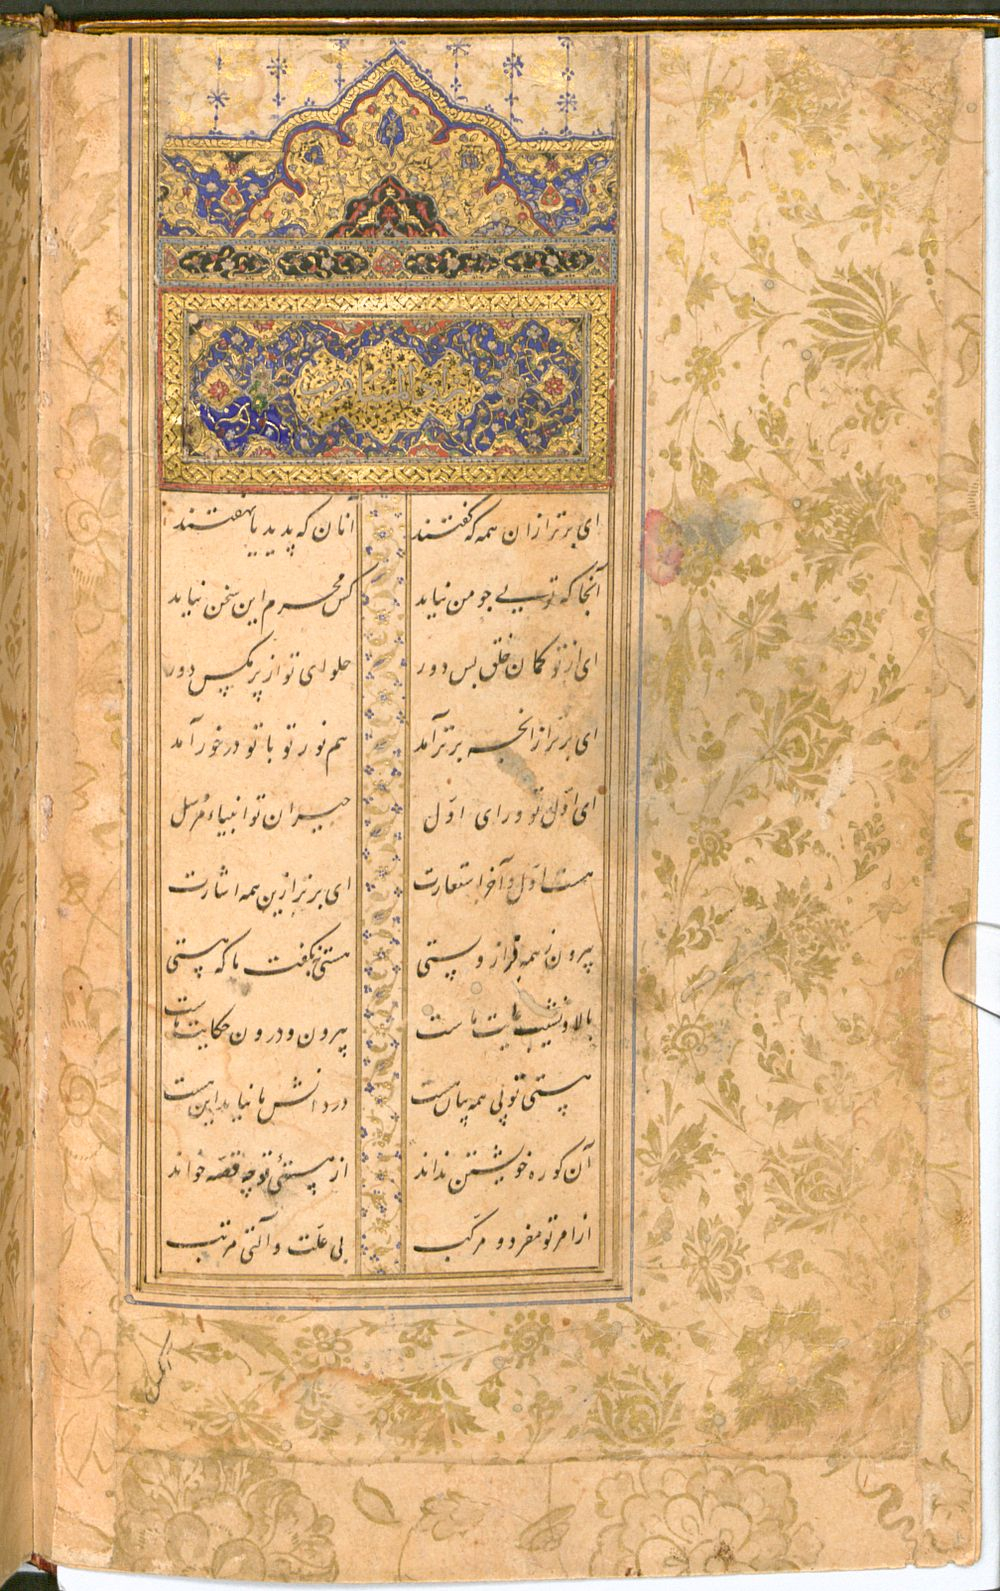 زاد المسافرین
ای برتر از ان همه که گفتند آنان که پدید یا نهفتند
آنجا که تویی جو من نیاید کس محرم این سخن نیاید
ای از تو کمان خلق بس دور حلوای تو از پر مکس دور
ای برتر از انجه برتر آمد هم نور تو با تو در خور آمد
ای اوّل تو ورای اوّل حیران تو انبیاء مُرسل
هست اوّل و آخر استعارت ای برتر ازین همه اشارت
بیرون ز همه فراز و پستی هستی نکفت با که هستی
بالا و نشیب غایت ماست بیرون و درون حکایت ماست
هستی تو پی همه هست در دانش ما نیاید این هست
آن کو ره خویشتن نداند از هستئ تو چه قصّه خواند
از امر تو مفرد و مرکّب بی علّت و آلتی مرتب